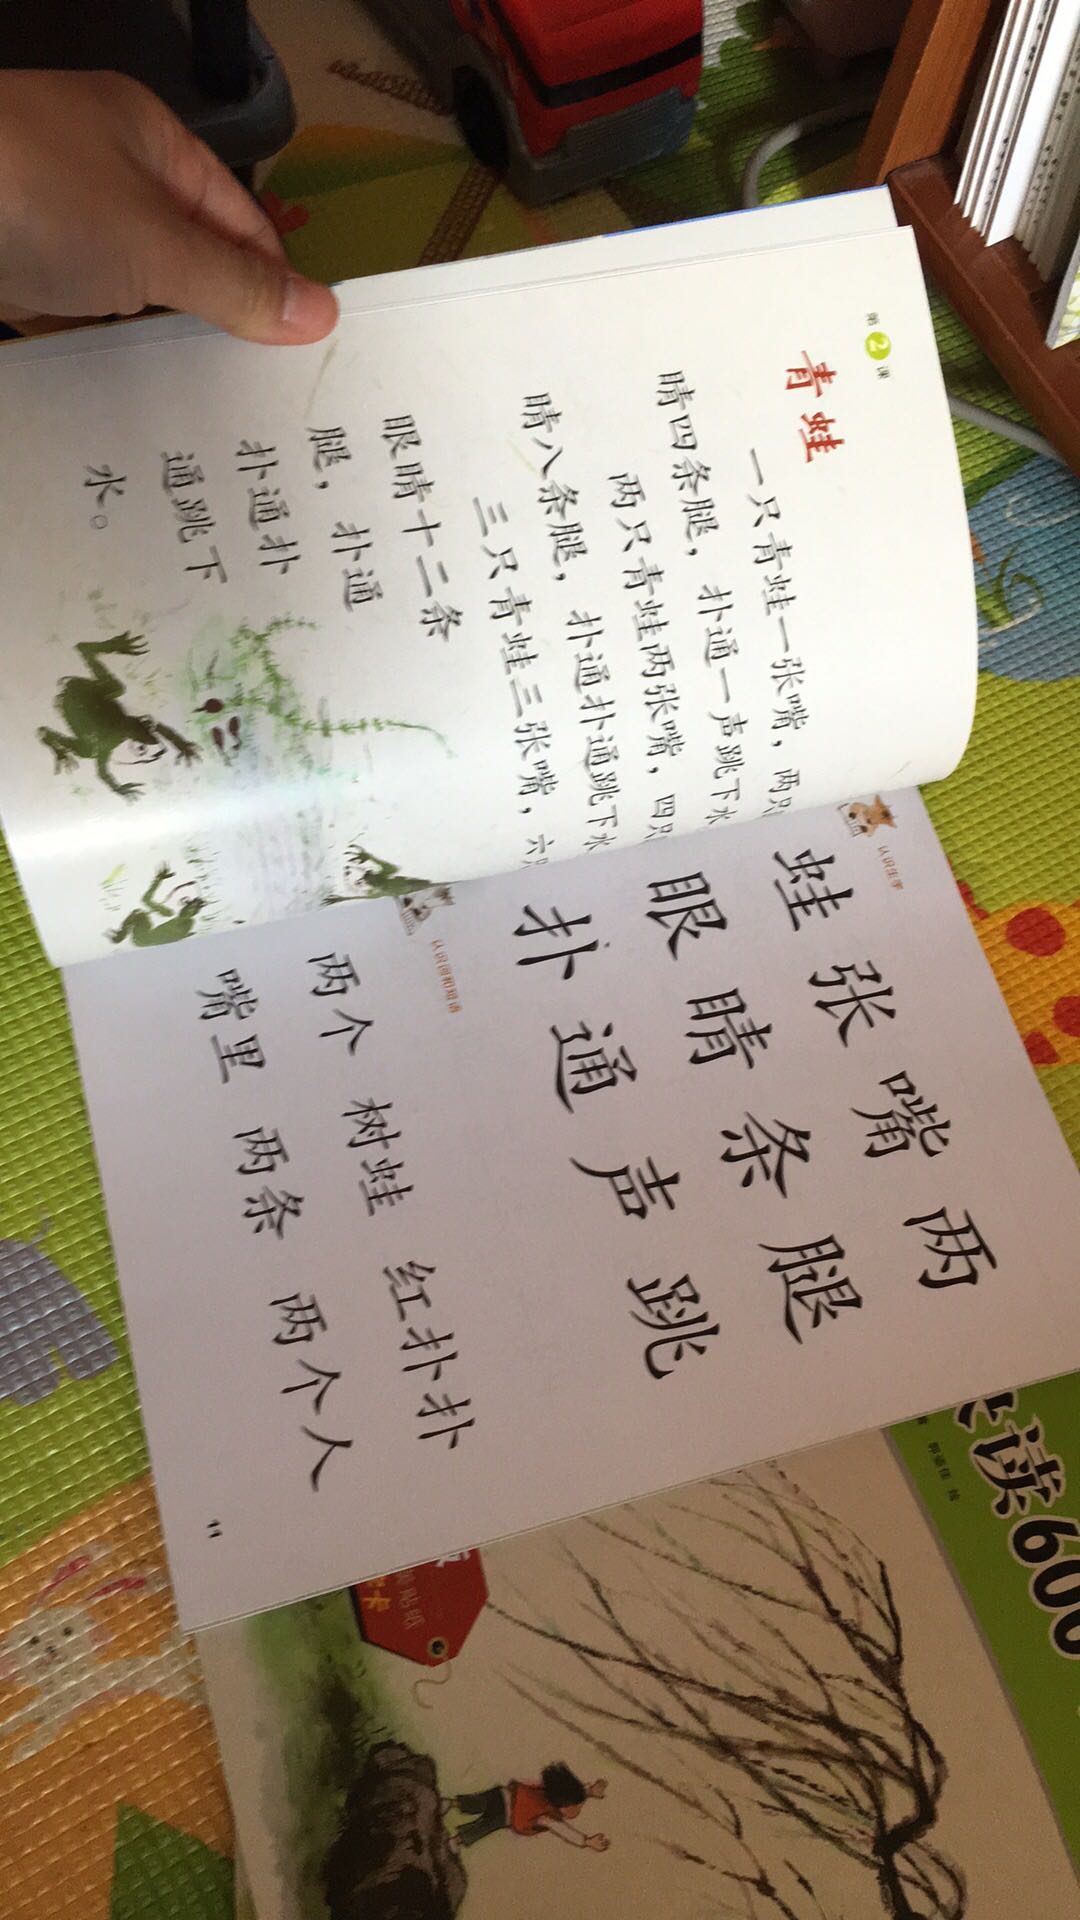 第2课
青蛙
一只青蛙一张嘴，两只
睛四条腿，扑通一声跳下水
两只青蛙两张嘴，四只
睛八条腿，扑通扑通跳下水
三只青蛙三张嘴，六只
眼睛十二条
腿，扑通
扑通扑
通跳下
水。
认识生字
蛙 张 嘴 两
眼 睛 条 腿
扑 通 声 跳
认识词和短语
两个 树蛙 红扑扑
嘴里 两条 两个人
11
读600
贴纸
卡